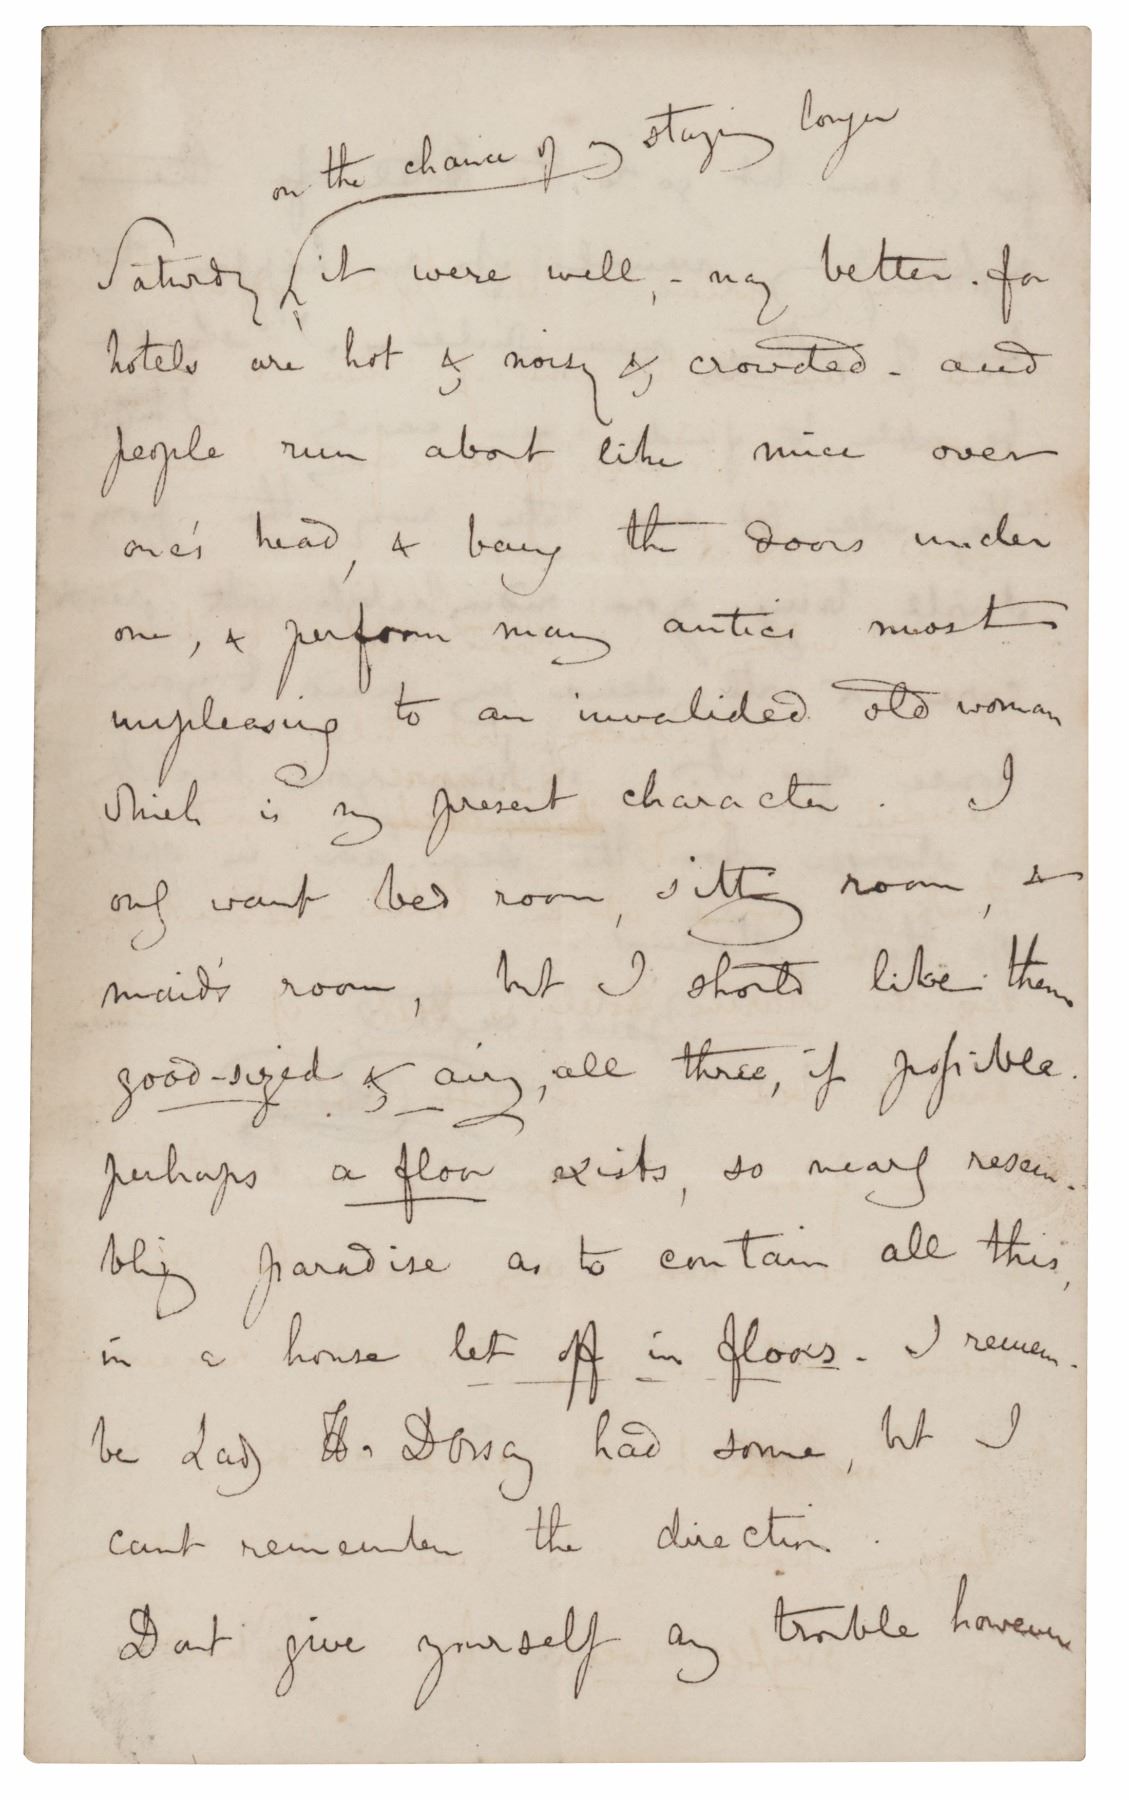 on the chance of my staying longer
Saturday it were well, - nay better. for
hotels are hot & noisy & crowded - and
people run about like mice over
one's head, & bang the doors under
one, & perform many antics most
unpleasing to an invalided old woman
which is my present character. I
only want bed room, sitting room, &
maid's room, but I should like them
good-sized & airy, all three, if possible.
perhaps a floor exists, so nearly resem-
bling paradise as to contain all this,
in a house let off in floors. I remem-
ber Lady H. D'Orsay had some, but I
cant remember the direction.
Dont give yourself any trouble however